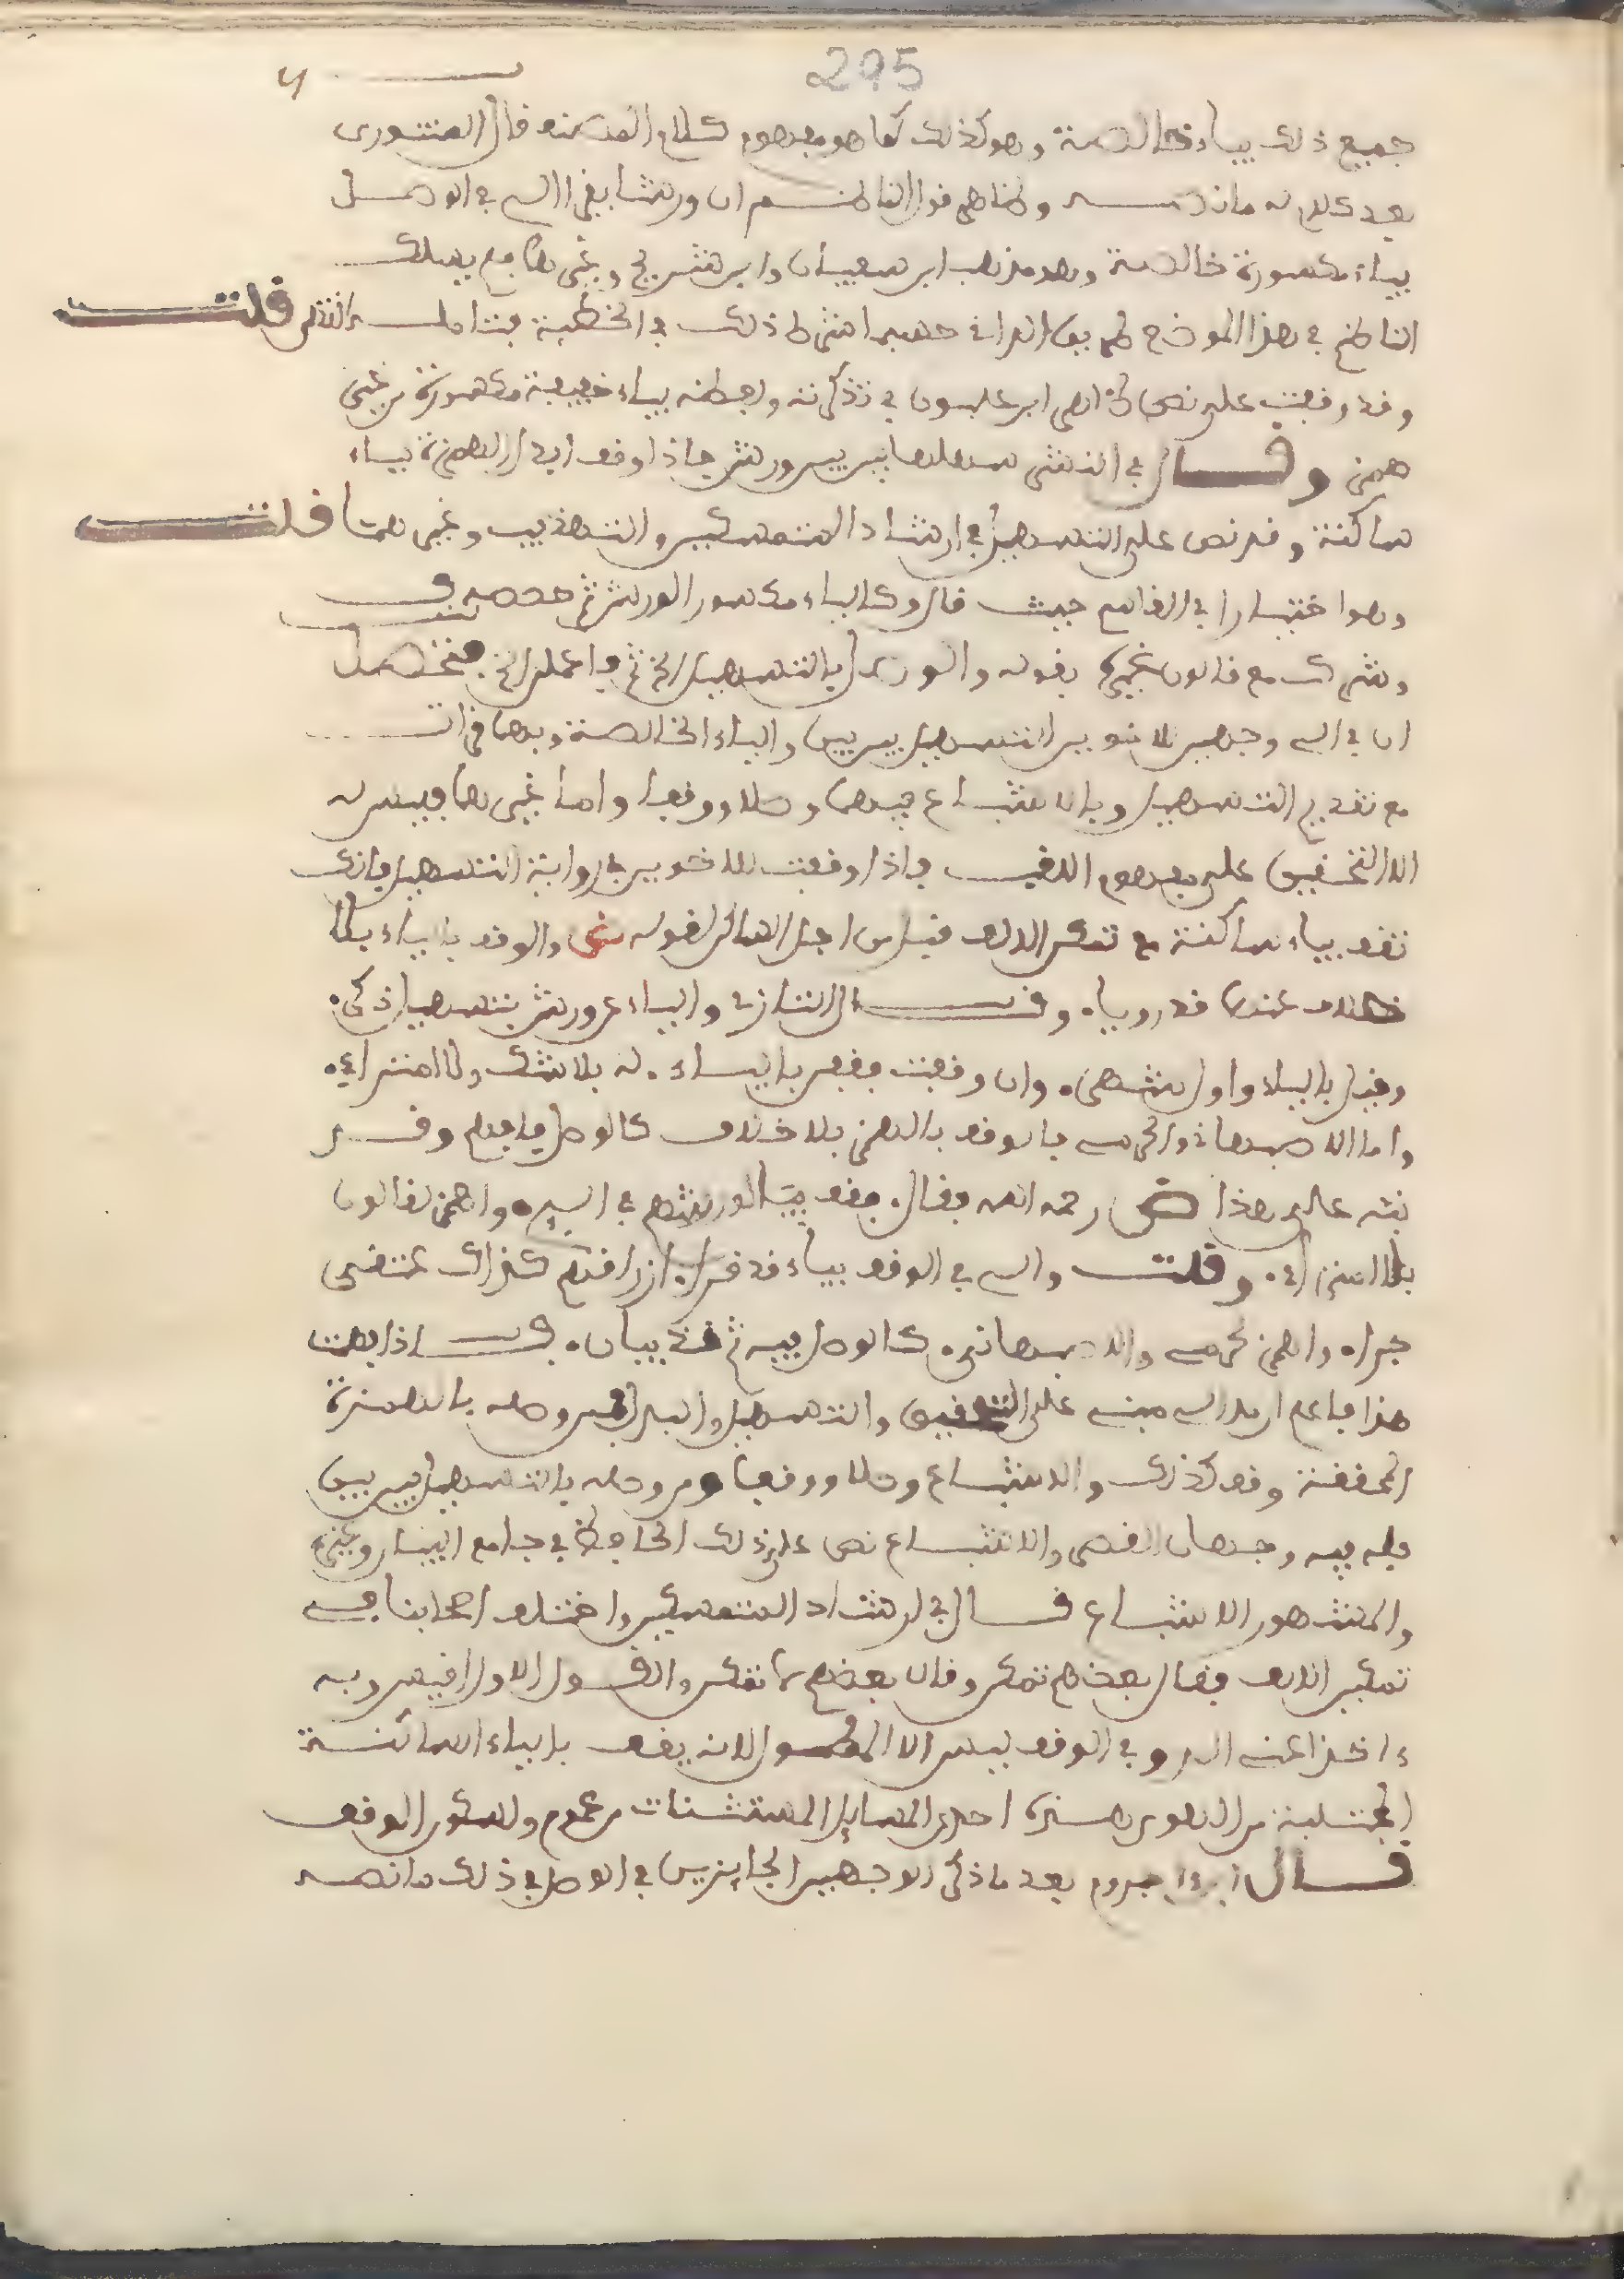 295
جميع ذلك بياء خالصة وهو كذلك كما هو مفهوم كلام المصنف قال المنتوري
بعد كلام له ما نصه وظاهر قول الناظم ان ورشا يقرا الى في الوصل
بياء مكسورة خالصة وهو مذهب ابن سعيان وابن شريح وغيرهما فلم يسلك
الناظم في هذا الموضع طريق الداني حسبما اشترط ذلك في الخطبة فتامله انتهى قلت
وقد وقفت على نص لطاهر ابن غلبون في تذكرته ولفظه بياء خفيفة مكسورة من غير
همز وقال في النشر سهلها بين بين ورش فاذا وقف ابدل الهمزة ياء
ساكنة وقد نص على التسهيل في ارشاد المتمسكين والتهذيب وغيرهما قلت
وهو اختيار ابي القاسم حيث قال وكالياء مكسورا لورش ثم
وشرك مع قالون غيره بقوله والوصل بالتسهيل الخ ثم فاعملن الخ فتحصل
ان في الى وجهين للاخوين التسهيل بين بين والياء الخالصة وبهما قرات
مع تقديم التسهيل وبالاشباع فيهما وصلا ووقفا واما غيرهما فليس له
الا التحقيق على مفهوم اللقب فاذا وقفت للاخوين في رواية التسهيل فانك
تقف بياء ساكنة مع تمكين الالف قبل من اجل الساكن لقوله والوقف بالياء بلا
خلاف عنهما قد رويا وقال التازي والياء عن ورش بتسهيل ذكر
وقيل بالياء واول شهر وان وقفت فقفن بالياء له بلا شك ولا امتراء
واما الاصبهاني والحرمي فالوقف بالهمز بلا خلاف كالوصل فافهم وقد
نبه على هذا رحمه الله فقال وقف بيا لورشهم في الى واهمز لقالون
بلا امتراء وقلت والى في الوقف بياء قد قرا ازرقهم كذاك عتقي
جرا واهمز لحرمي والاصبهاني كالوصل فيه ثم خذ بيان اذا فهمت
هذا فاعلم ان مد الى مبني على التحقيق والتسهيل والبدل فمن وصله بالهمزة
المحققة وقف كذلك والاشباع وصلا ووقفا ومن وصله بالتسهيل بين بين
فله فيه وجهان القصر والاشباع نص على ذلك الحافظ في جامع البيان وغيره
والمشهور الاشباع قال في ارشاد المتمسكين واختلف اصحابنا في
تمكين الالف فقال بعضهم تمكن وقال بعضهم لا تمكن والقول الاول اقيس وبه
ءاخذ اعني المد وفي الوقف ليس الا المطول لانه يقف بالياء الساكنة
المجتلبة من الهمزة احدى المسائل المستثنات من عموم ولسكون الوقف
قال ابن ءاجروم بعد ما ذكر الوجهين الجايزين في الوصل في ذلك ما نصه